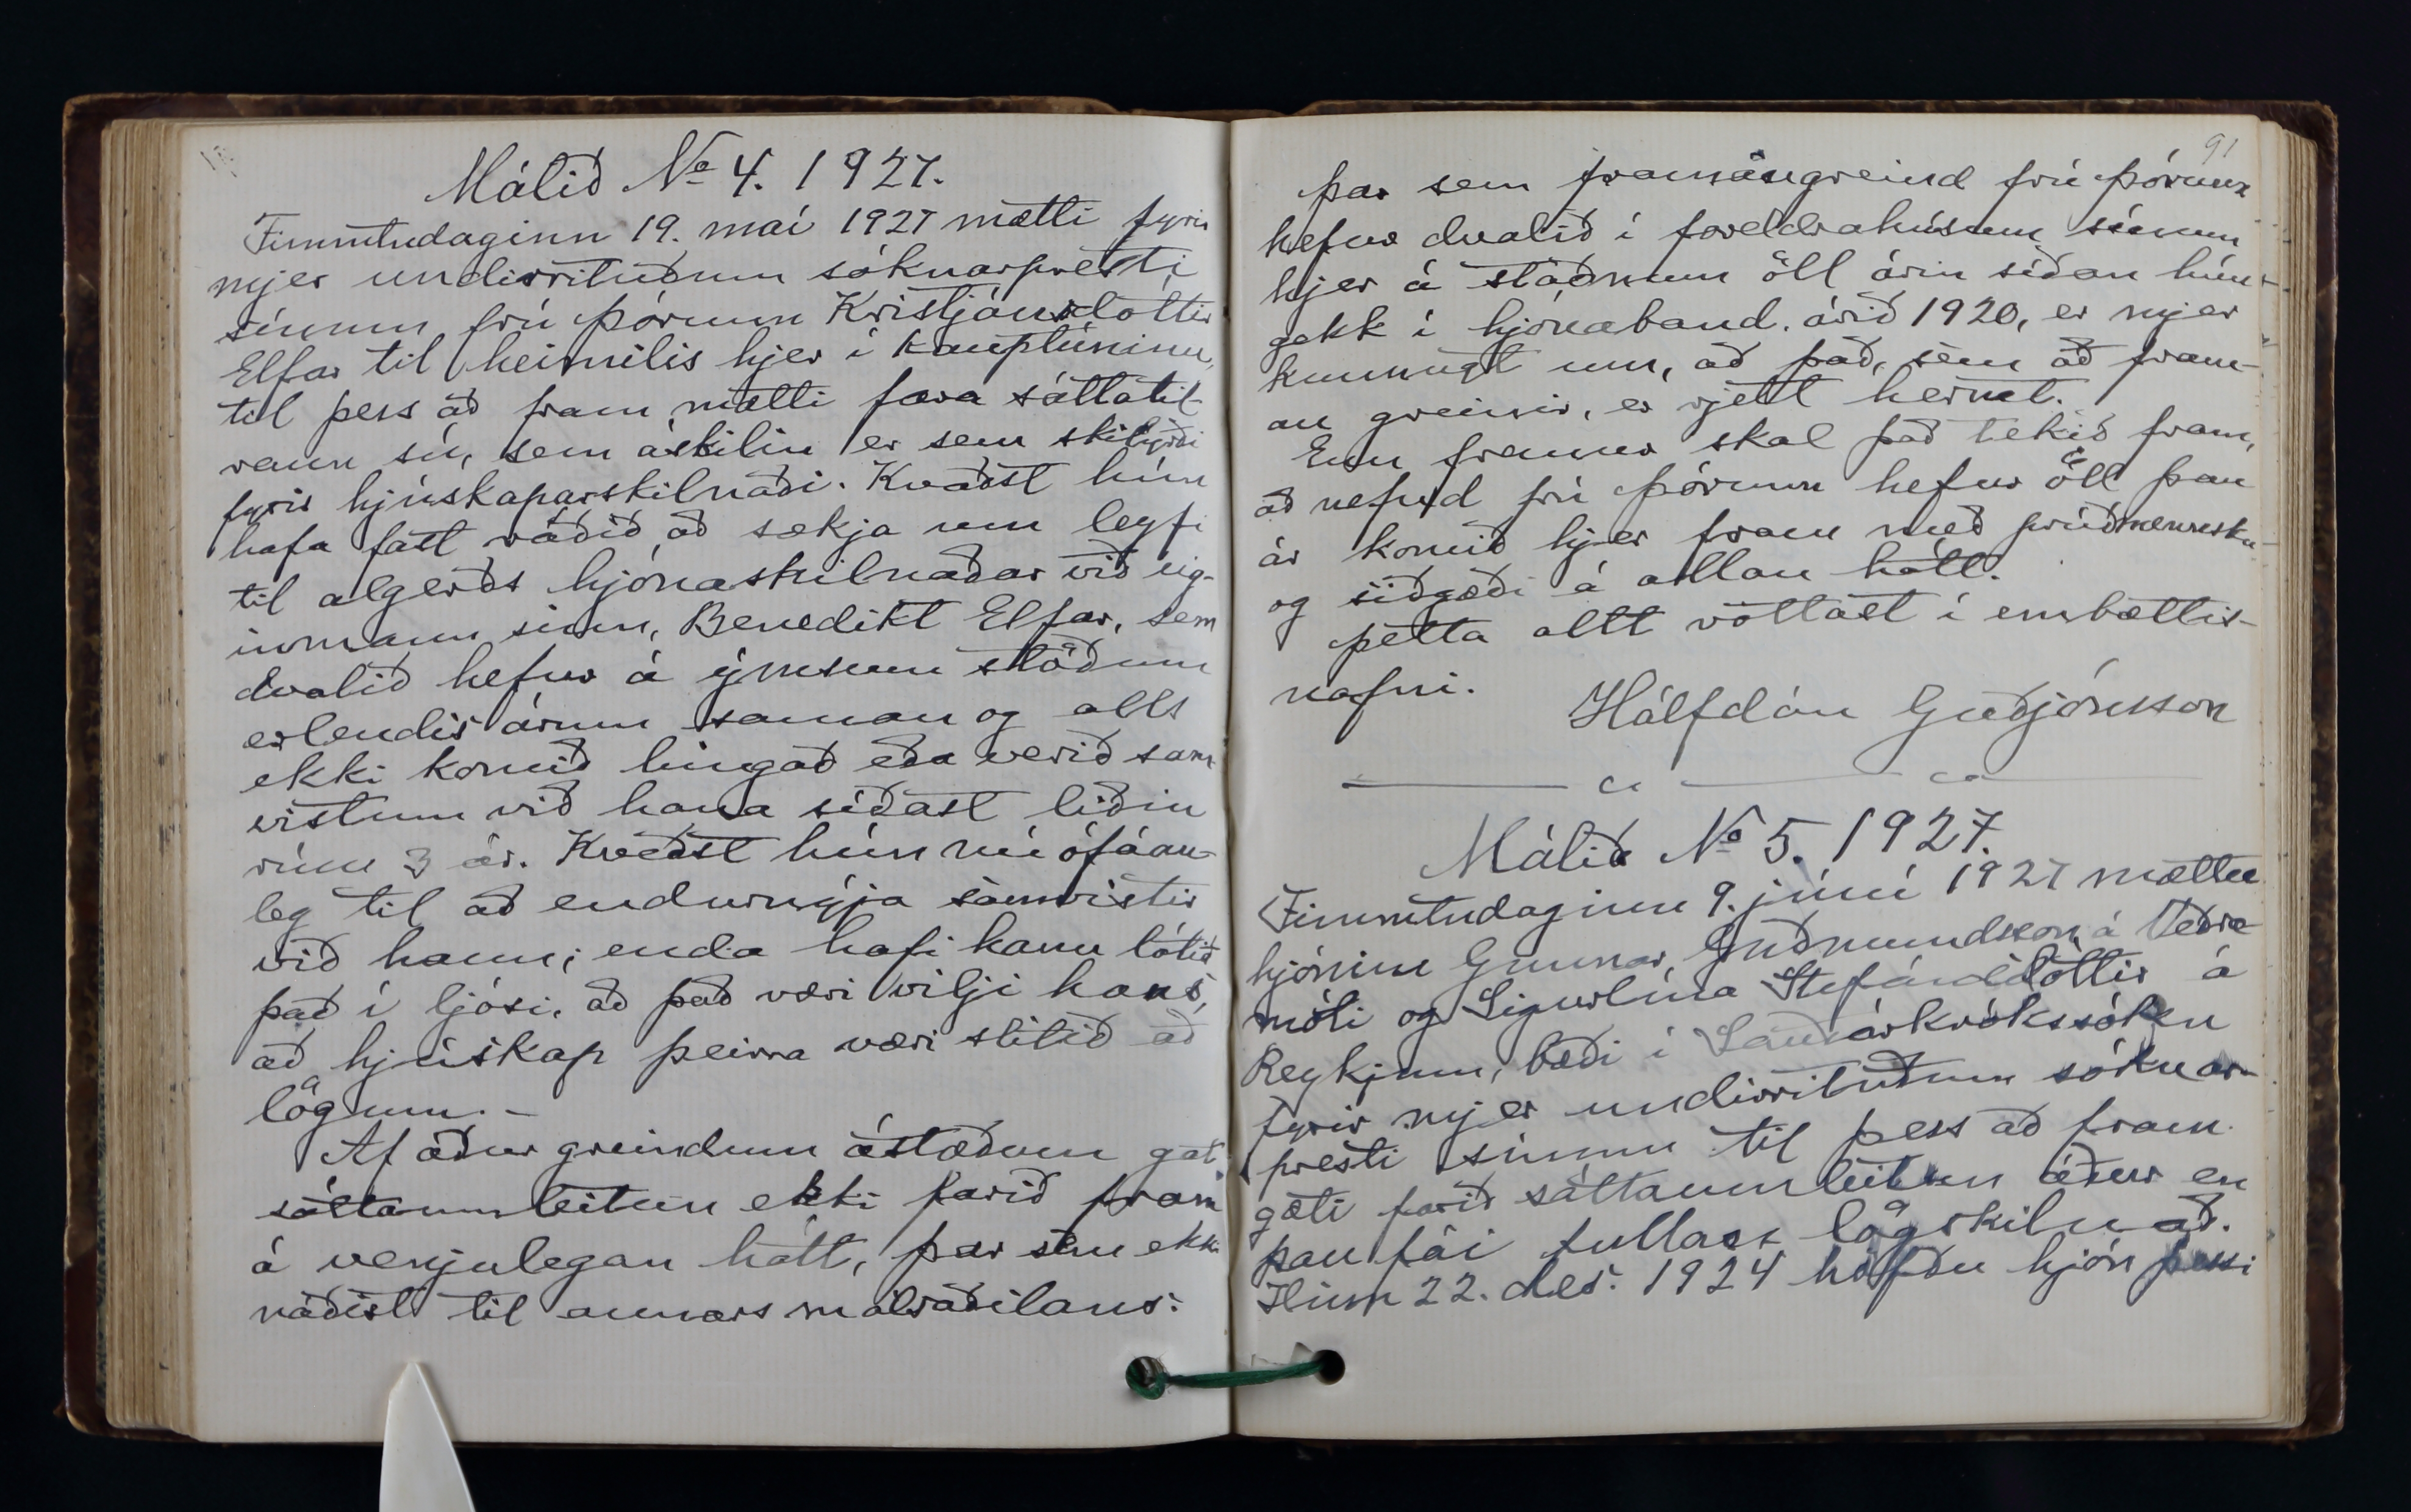 Málið No 4. 1927.
Fimmtudaginn 19. maí 1927 mætti fyrir
mjer undirrituðum sóknarpresti
sínum frú Þórunn Kristjánsdóttir
Elfar til heimilis hjer í kauptúninu,
til þess að fram mætti fara sáttatil-
raun sú, sem áskilin er sem skilyrði
fyrir hjúskaparskilnaði. Kvaðst hún
hafa fast ráðið að sækja um leyfi
til algerðs hjónaskilnaðar við eig-
inmann sinn, Benedikt Elfar, sem
dvalið hefur á ýmsum stöðum
erlendis árum saman og alls
ekki komið hingað eða verið sam-
vistum við hana síðast liðin
rúm 3 ár. Kveðst hún nú ófáan-
leg til að endurnýja samvistir
við hann; enda hafi hann látið
það í ljósi, að það væri vilji hans,
að hjúskap þeirra væri slitið að
lögum. -
Af áður greindum ástæðum gat
sáttaumleitun ekki farið fram
á venjulegan hátt, þar sem ekki
náðist til annars málsaðilans:
91
þar sem framangreind frú Þórunn
hefur dvalið í foreldrahúsum sínum
hjer á staðnum öll árin síðan hún
gekk í hjónaband. árið 1920, er mjer
kunnugt um, að það, sem að fram-
an greinir, er rjett hermt.
Enn fremur skal það tekið fram,
að nefnd frú Þórunn hefur öll þau
ár komið hjer fram með prúðmennsku
og siðgæði á allan hátt.
Þetta allt vottast í embættis-
nafni.
Hálfdán Guðjónsson
Málið No 5. 1927.
Fimmtudaginn 9. júní 1927 mættu
hjónin Gunnar Guðmundsson á Veðra-
móti og Sigurlína Stefánsdóttir á
Reykjum, bæði í Sauðárkrókssókn
fyrir mjer undirrituðum sóknar-
presti sínum til þess að fram
gæti farið sáttaumleitun áður en
þau fái fullan lögskilnað.
Hinn 22. des. 1924 höfðu hjón þessi